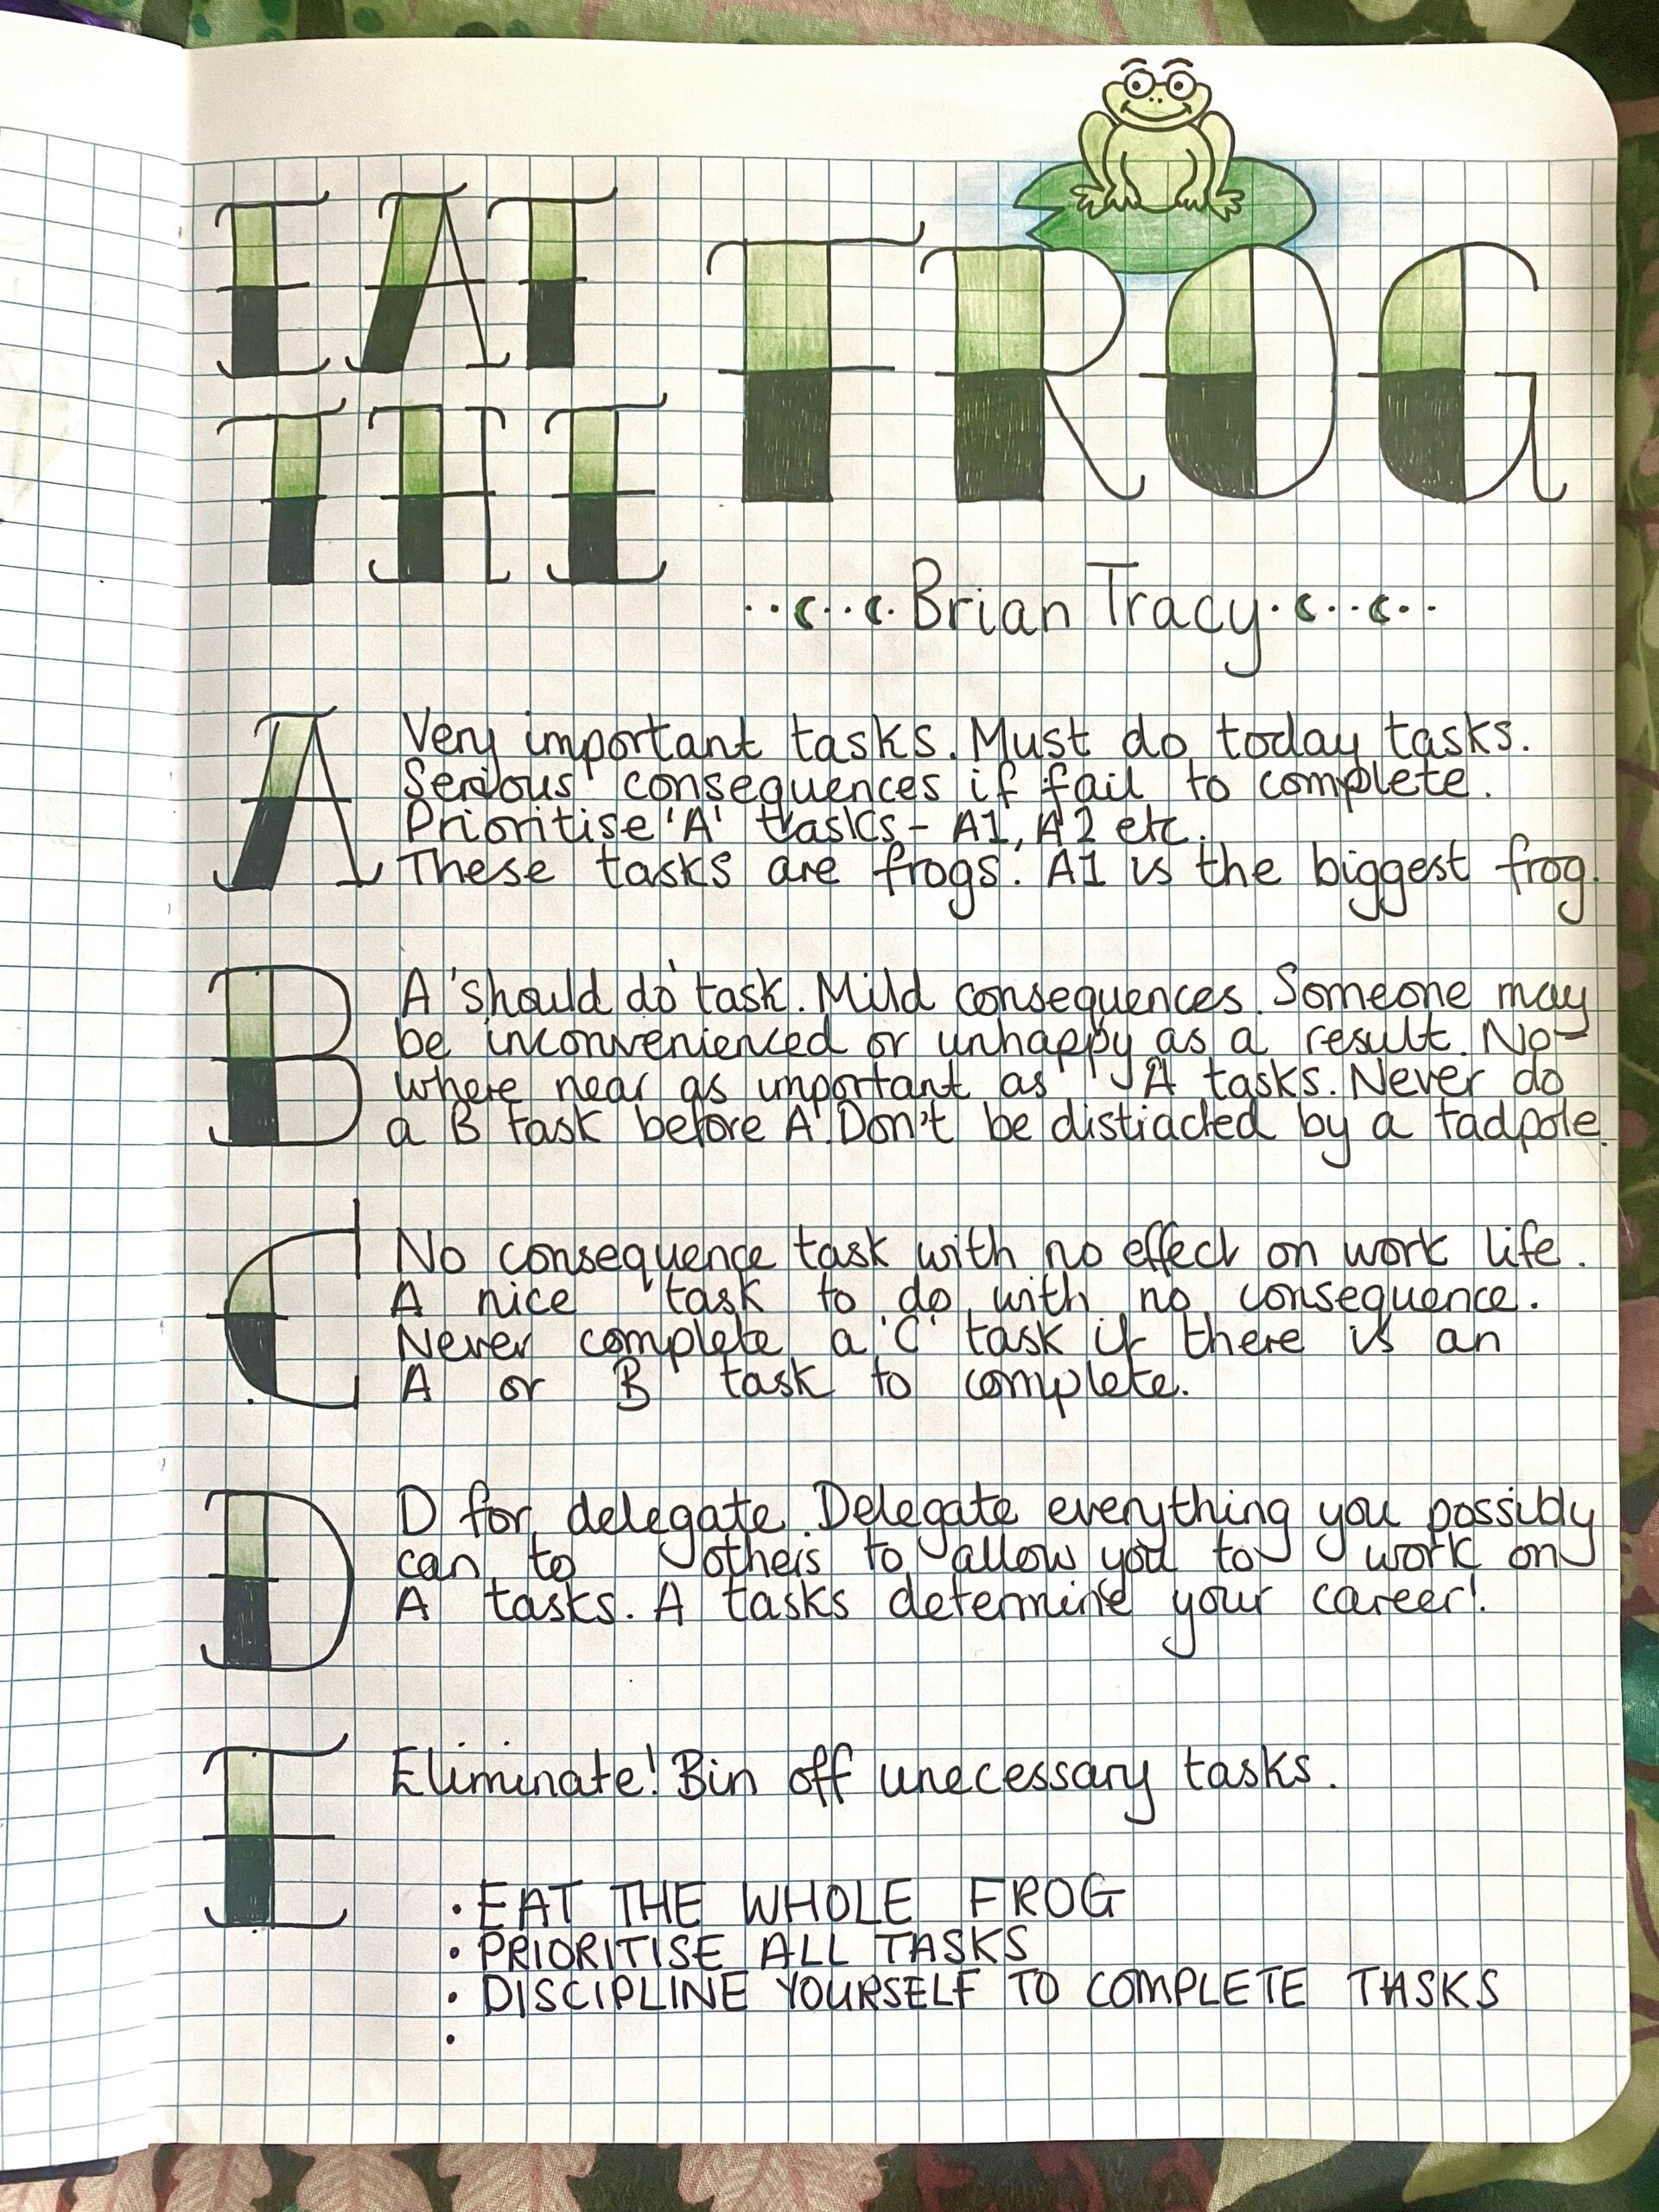 EAT
THE
FROG
Brian Tracy
A
Very important tasks. Must do today tasks.
Serious consequences if fail to complete.
Prioritise 'A' tasks - A1, A2 etc.
These tasks are frogs. A1 is the biggest frog.
B
A 'should do' task. Mild consequences. Someone may
be inconvenienced or unhappy as a result. No-
where near as important as A tasks. Never do
a B task before A. Don't be distracted by a tadpole.
C
No consequence task with no effect on work life.
A nice task to do with no consequence.
Never complete a 'C' task if there is an
A or B task to complete.
D
D for delegate. Delegate everything you possibly
can to others to allow you to work on
A tasks. A tasks determine your career!
E
Eliminate! Bin off unecessary tasks.
· EAT THE WHOLE FROG
· PRIORITISE ALL TASKS
· DISCIPLINE YOURSELF TO COMPLETE TASKS
·